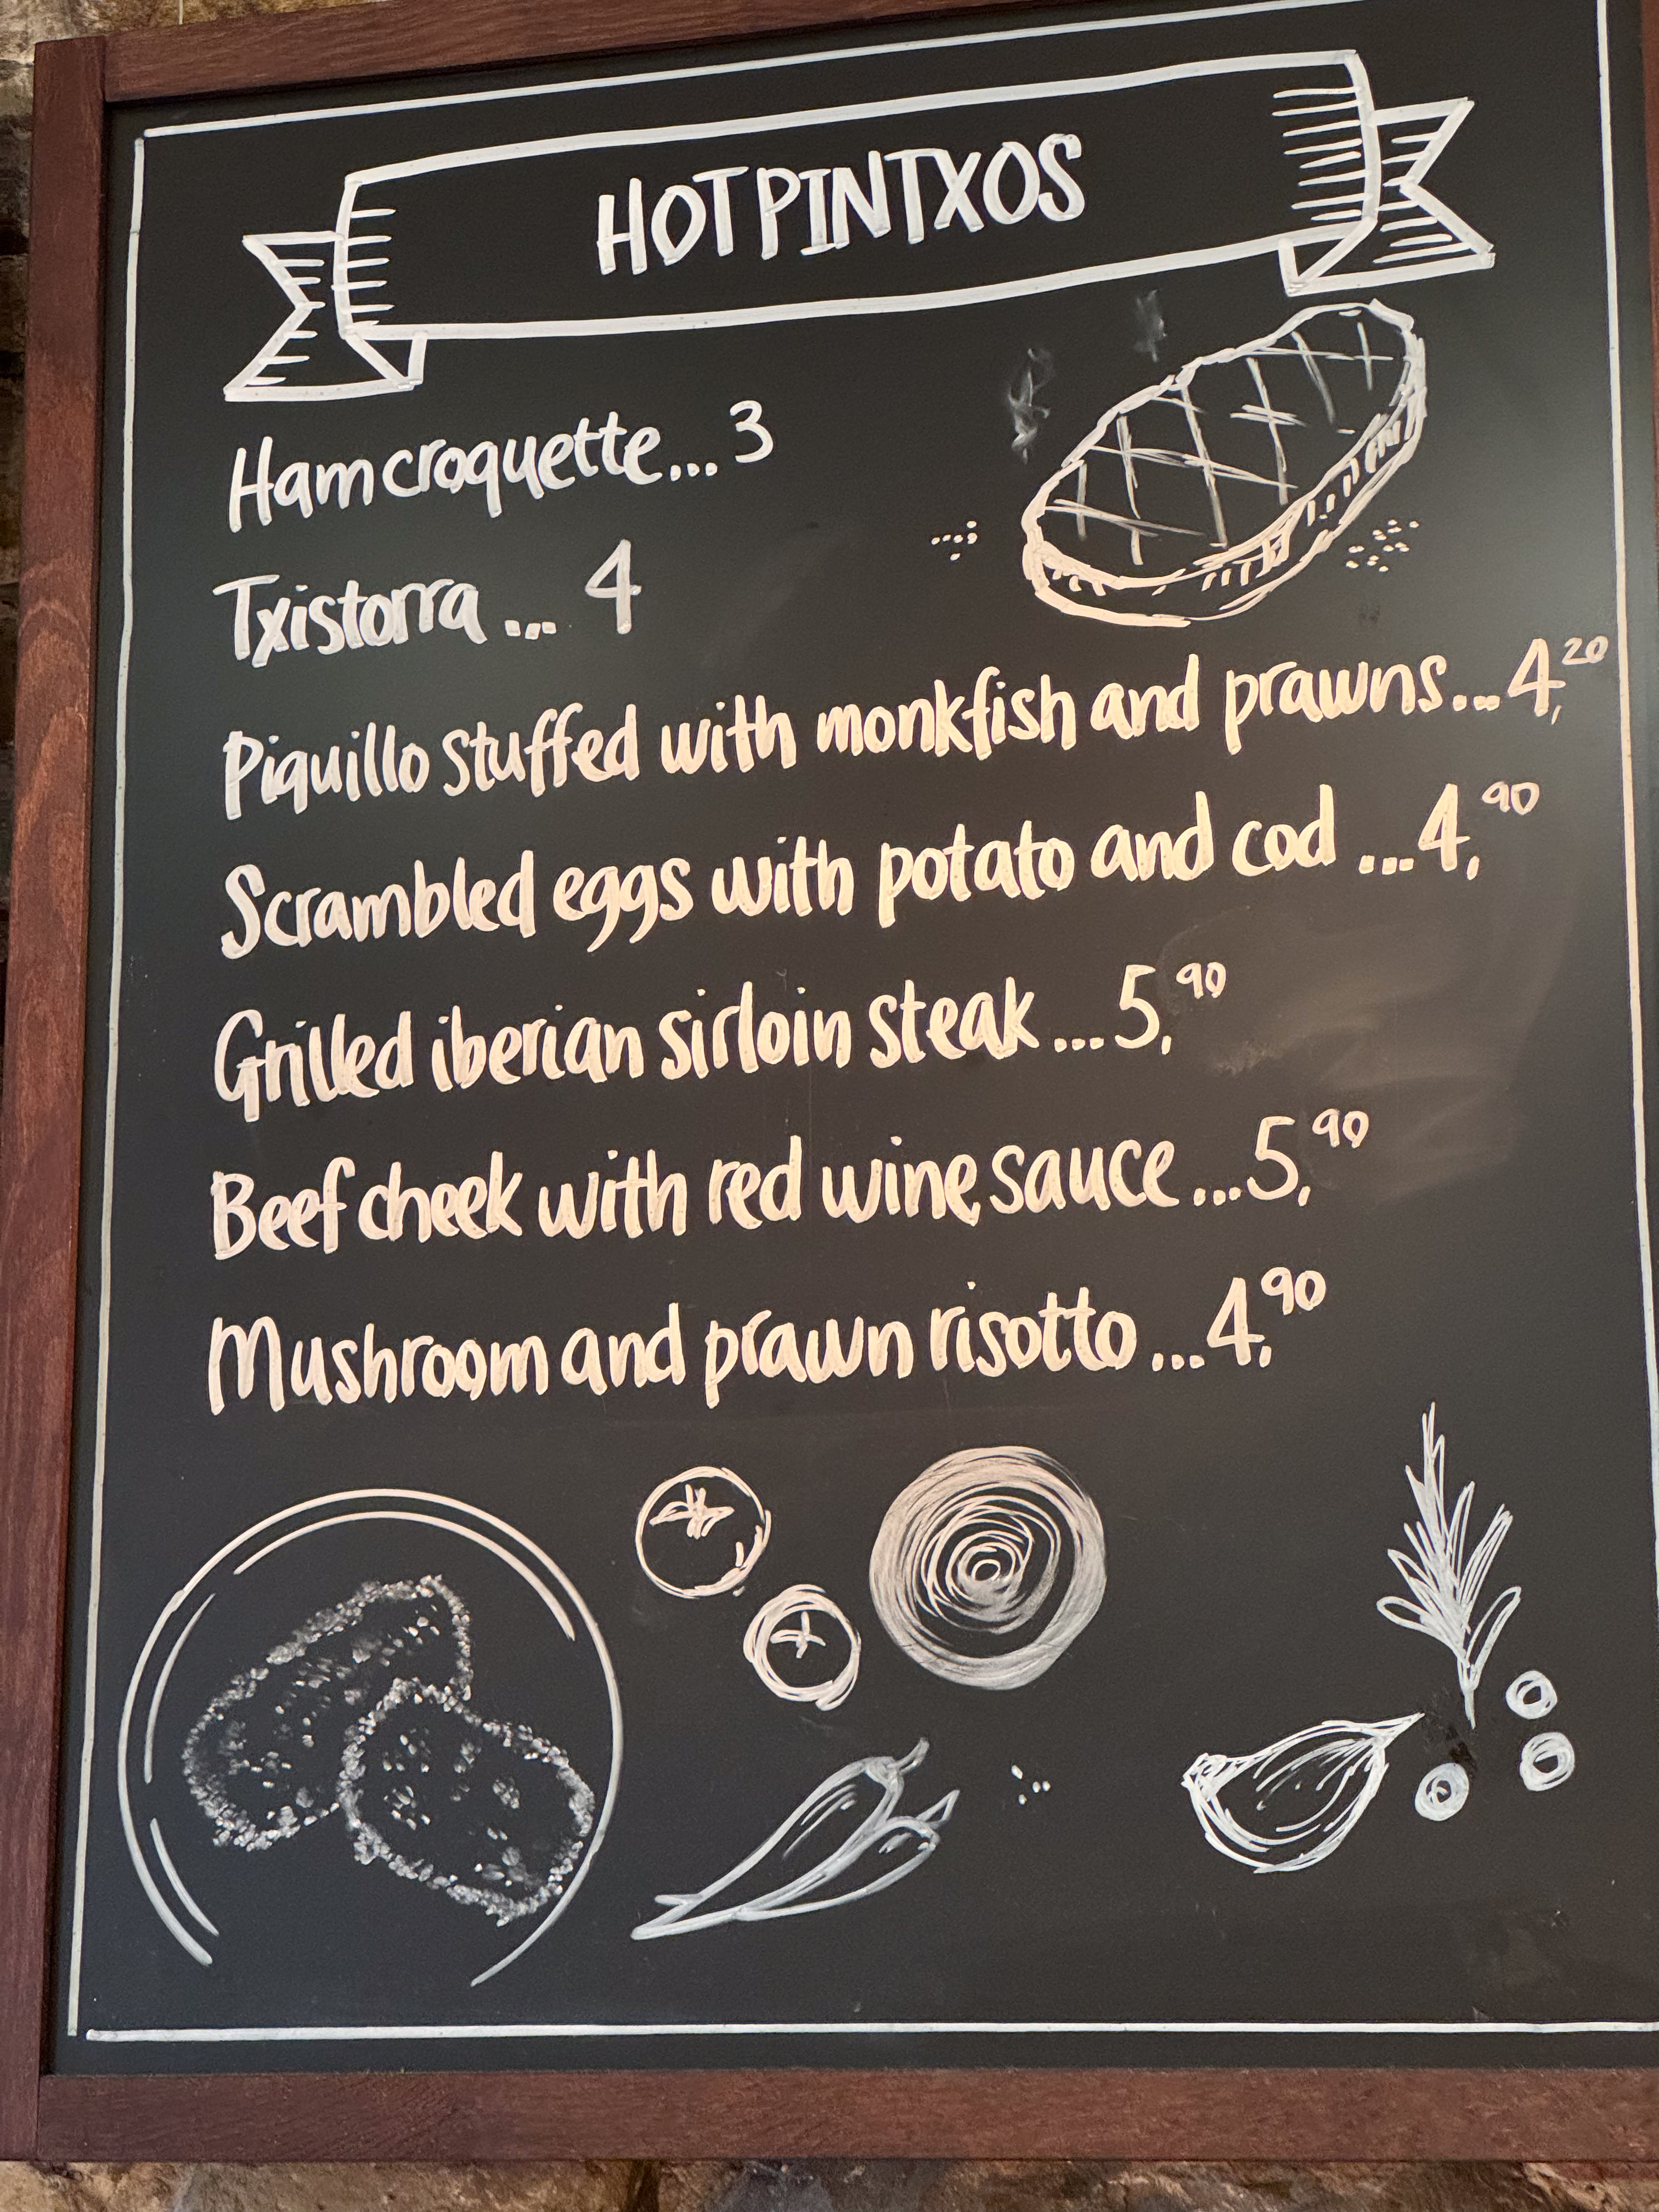 HOT PINTXOS
Ham croquette... 3
Txistorra ... 4
Piquillo stuffed with monkfish and prawns... 4,20
Scrambled eggs with potato and cod ... 4,90
Grilled iberian sirloin steak ... 5,90
Beef cheek with red wine sauce ... 5,90
Mushroom and prawn risotto ... 4,90